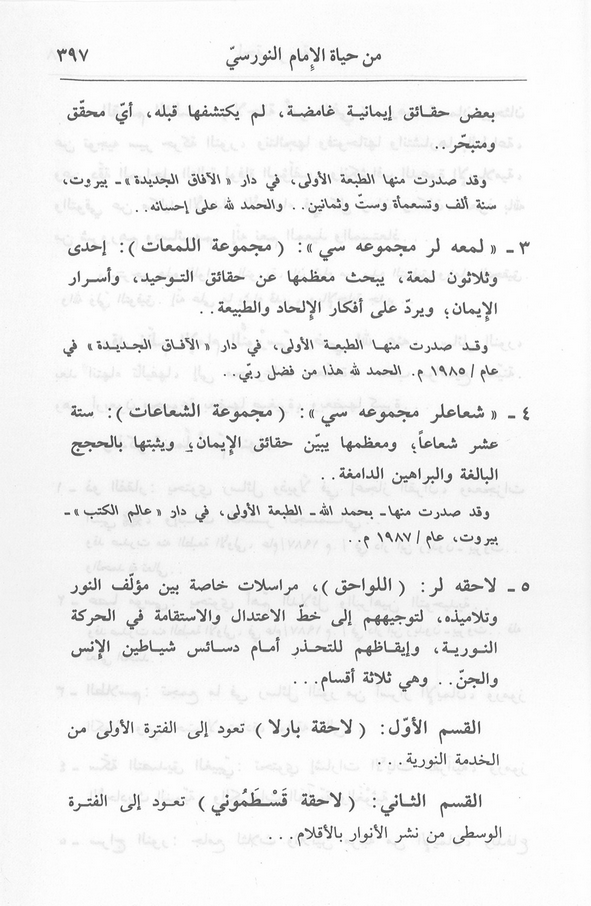 من حياة الإمام النورسيّ ٣٩٧
بعض حقائق إيمانية غامضة، لم يكتشفها قبله، أيّ محقّق
ومتبحّر..
وقد صدرت منها الطبعة الأولى، في دار «الآفاق الجديدة» ـ بيروت،
سنة ألف وتسعمأة وستّ وثمانين.. والحمد لله على إحسانه..
٣ ـ «لمعه لر مجموعه سي»: (مجموعة اللمعات): إحدى
وثلاثون لمعة، يبحث معظمها عن حقائق التوحيد، وأسرار
الإيمان؛ ويردّ على أفكار الإلحاد والطبيعة..
وقد صدرت منها الطبعة الأولى، في دار «الآفاق الجديدة» في
عام / ١٩٨٥ م. الحمد لله هذا من فضل ربّي..
٤ ـ «شعاعلر مجموعه سي»: (مجموعة الشعاعات): ستة
عشر شعاعاً؛ ومعظمها يبيّن حقائق الإيمان؛ ويثبتها بالحجج
البالغة والبراهين الدامغة..
وقد صدرت منها ـ بحمد الله ـ الطبعة الأولى، في دار «عالم الكتب» ـ
بيروت، عام / ١٩٨٧ م..
٥ ـ لاحقه لر: (اللواحق)، مراسلات خاصة بين مؤلّف النور
وتلاميذه، لتوجيههم إلى خطّ الاعتدال والاستقامة في الحركة
النورية، وإيقاظهم للتحذر أمام دسائس شياطين الإنس
والجنّ.. وهي ثلاثة أقسام...
القسم الأوّل: (لاحقة بارلا) تعود إلى الفترة الأولى من
الخدمة النورية...
القسم الثاني: (لاحقة قَسْطَمُوني) تعود إلى الفترة
الوسطى من نشر الأنوار بالأقلام...